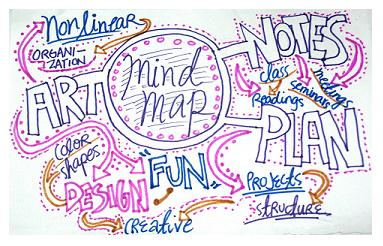 Nonlinear
ORGANI-
ZATION
mind
map
NOTES
class
Readings
meetings
seminars
ART
PLAN
COLOR
Shapes
"FUN"
DESIGN
PROJECTS
structure
creative